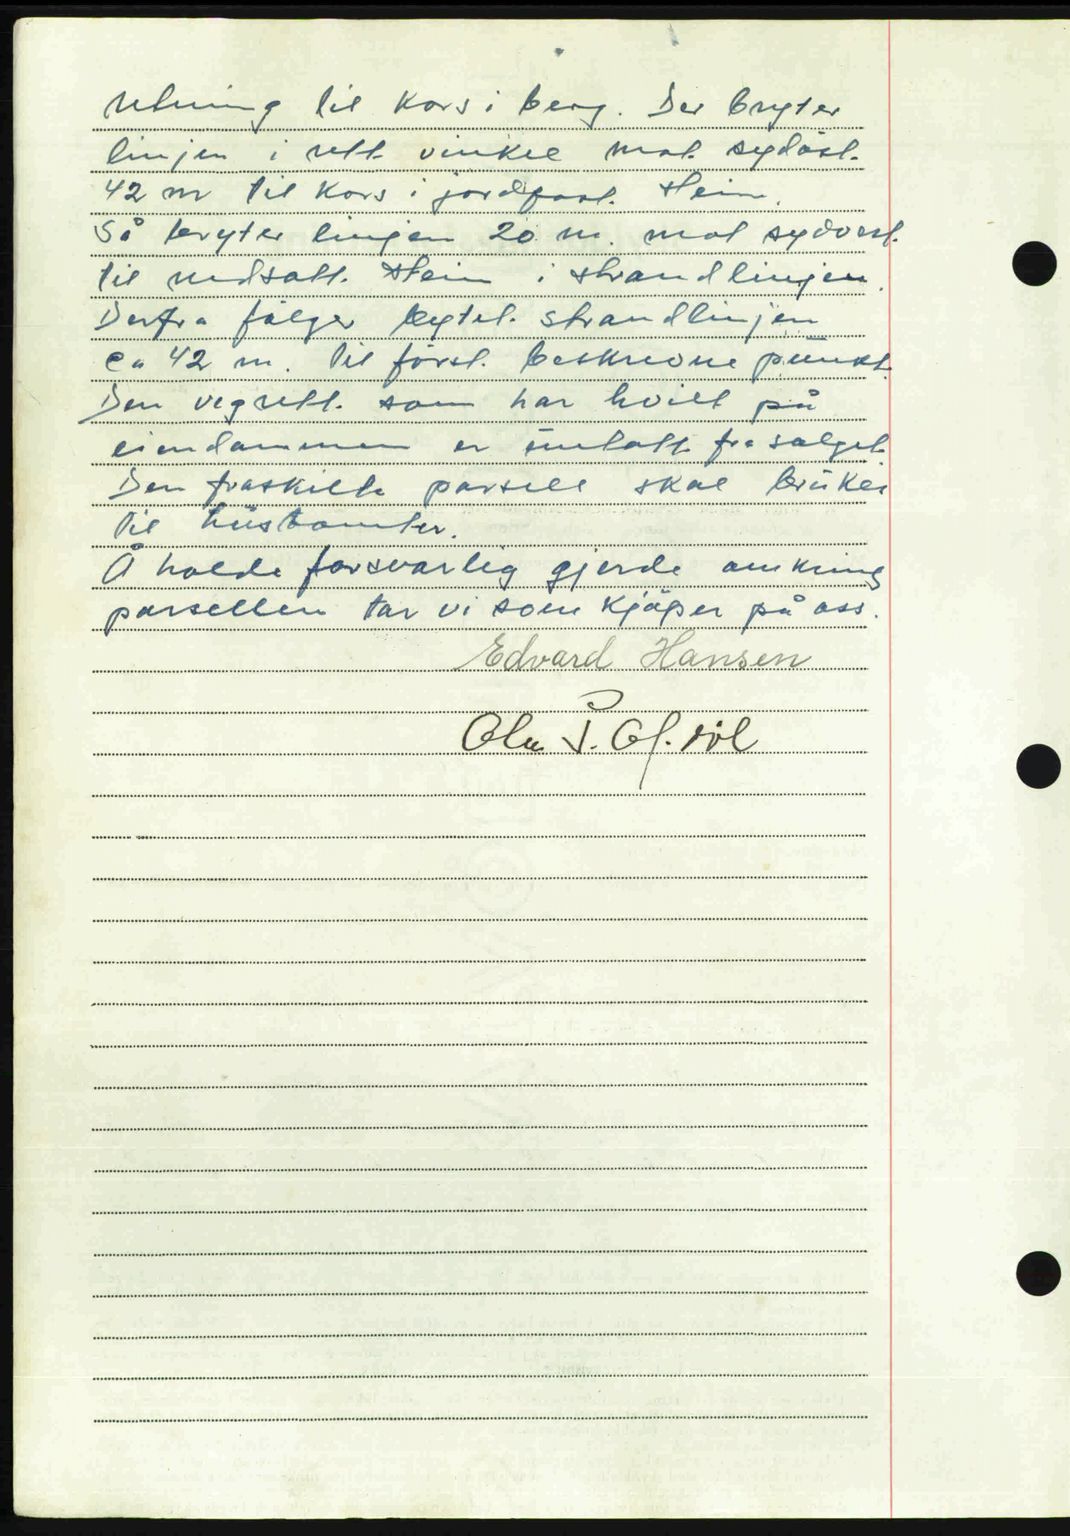 retning til kors i berg. Der bryter
linjen i rett vinkel mot sydöst.
42 m til kors i jordfast stein.
Så bryter linjen 20 m. mot sydvest.
til nedsatt stein i strandlinjen.
Derfra fölger bytet strandlinjen
ca 42 m. til först beskrevne punkt.
Den vegrett som har hvilt på
eiendommen er untatt fra salget.
Den fraskilte parsell skal brukes
til hustomter.
Å holde forsvarlig gjerde omkring
parsellen tar vi som kjöper på oss.
Edvard Hansen
Ola P.